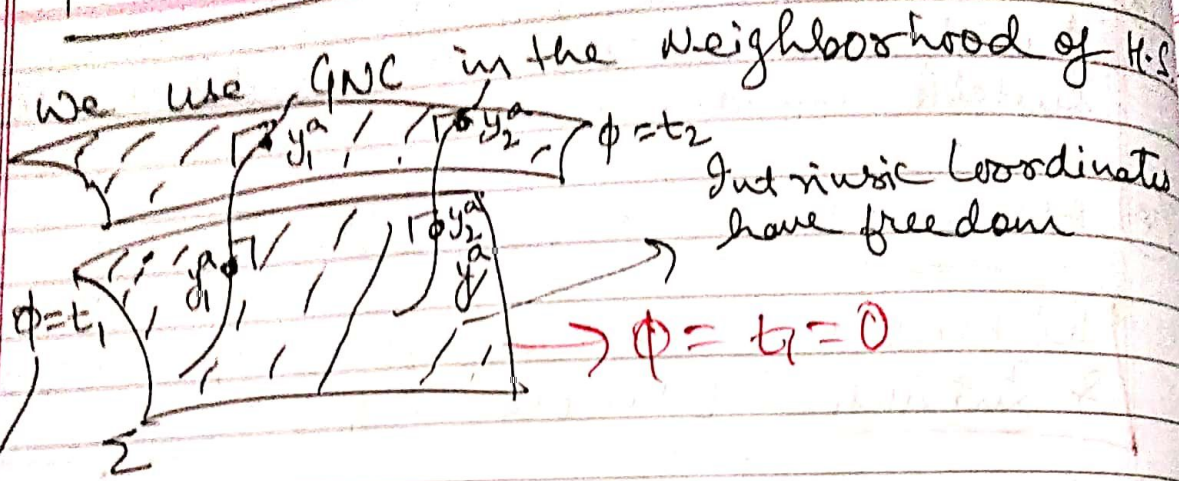 We use GNC in the Neighborhood of H.S.
y₁ᵃ y₂ᵃ ϕ = t₂
Intrinsic Coordinates
have freedom
y₁ᵃ y₂ᵃ
yᵃ
ϕ = t₁
→ ϕ = t₁ = 0
Σ